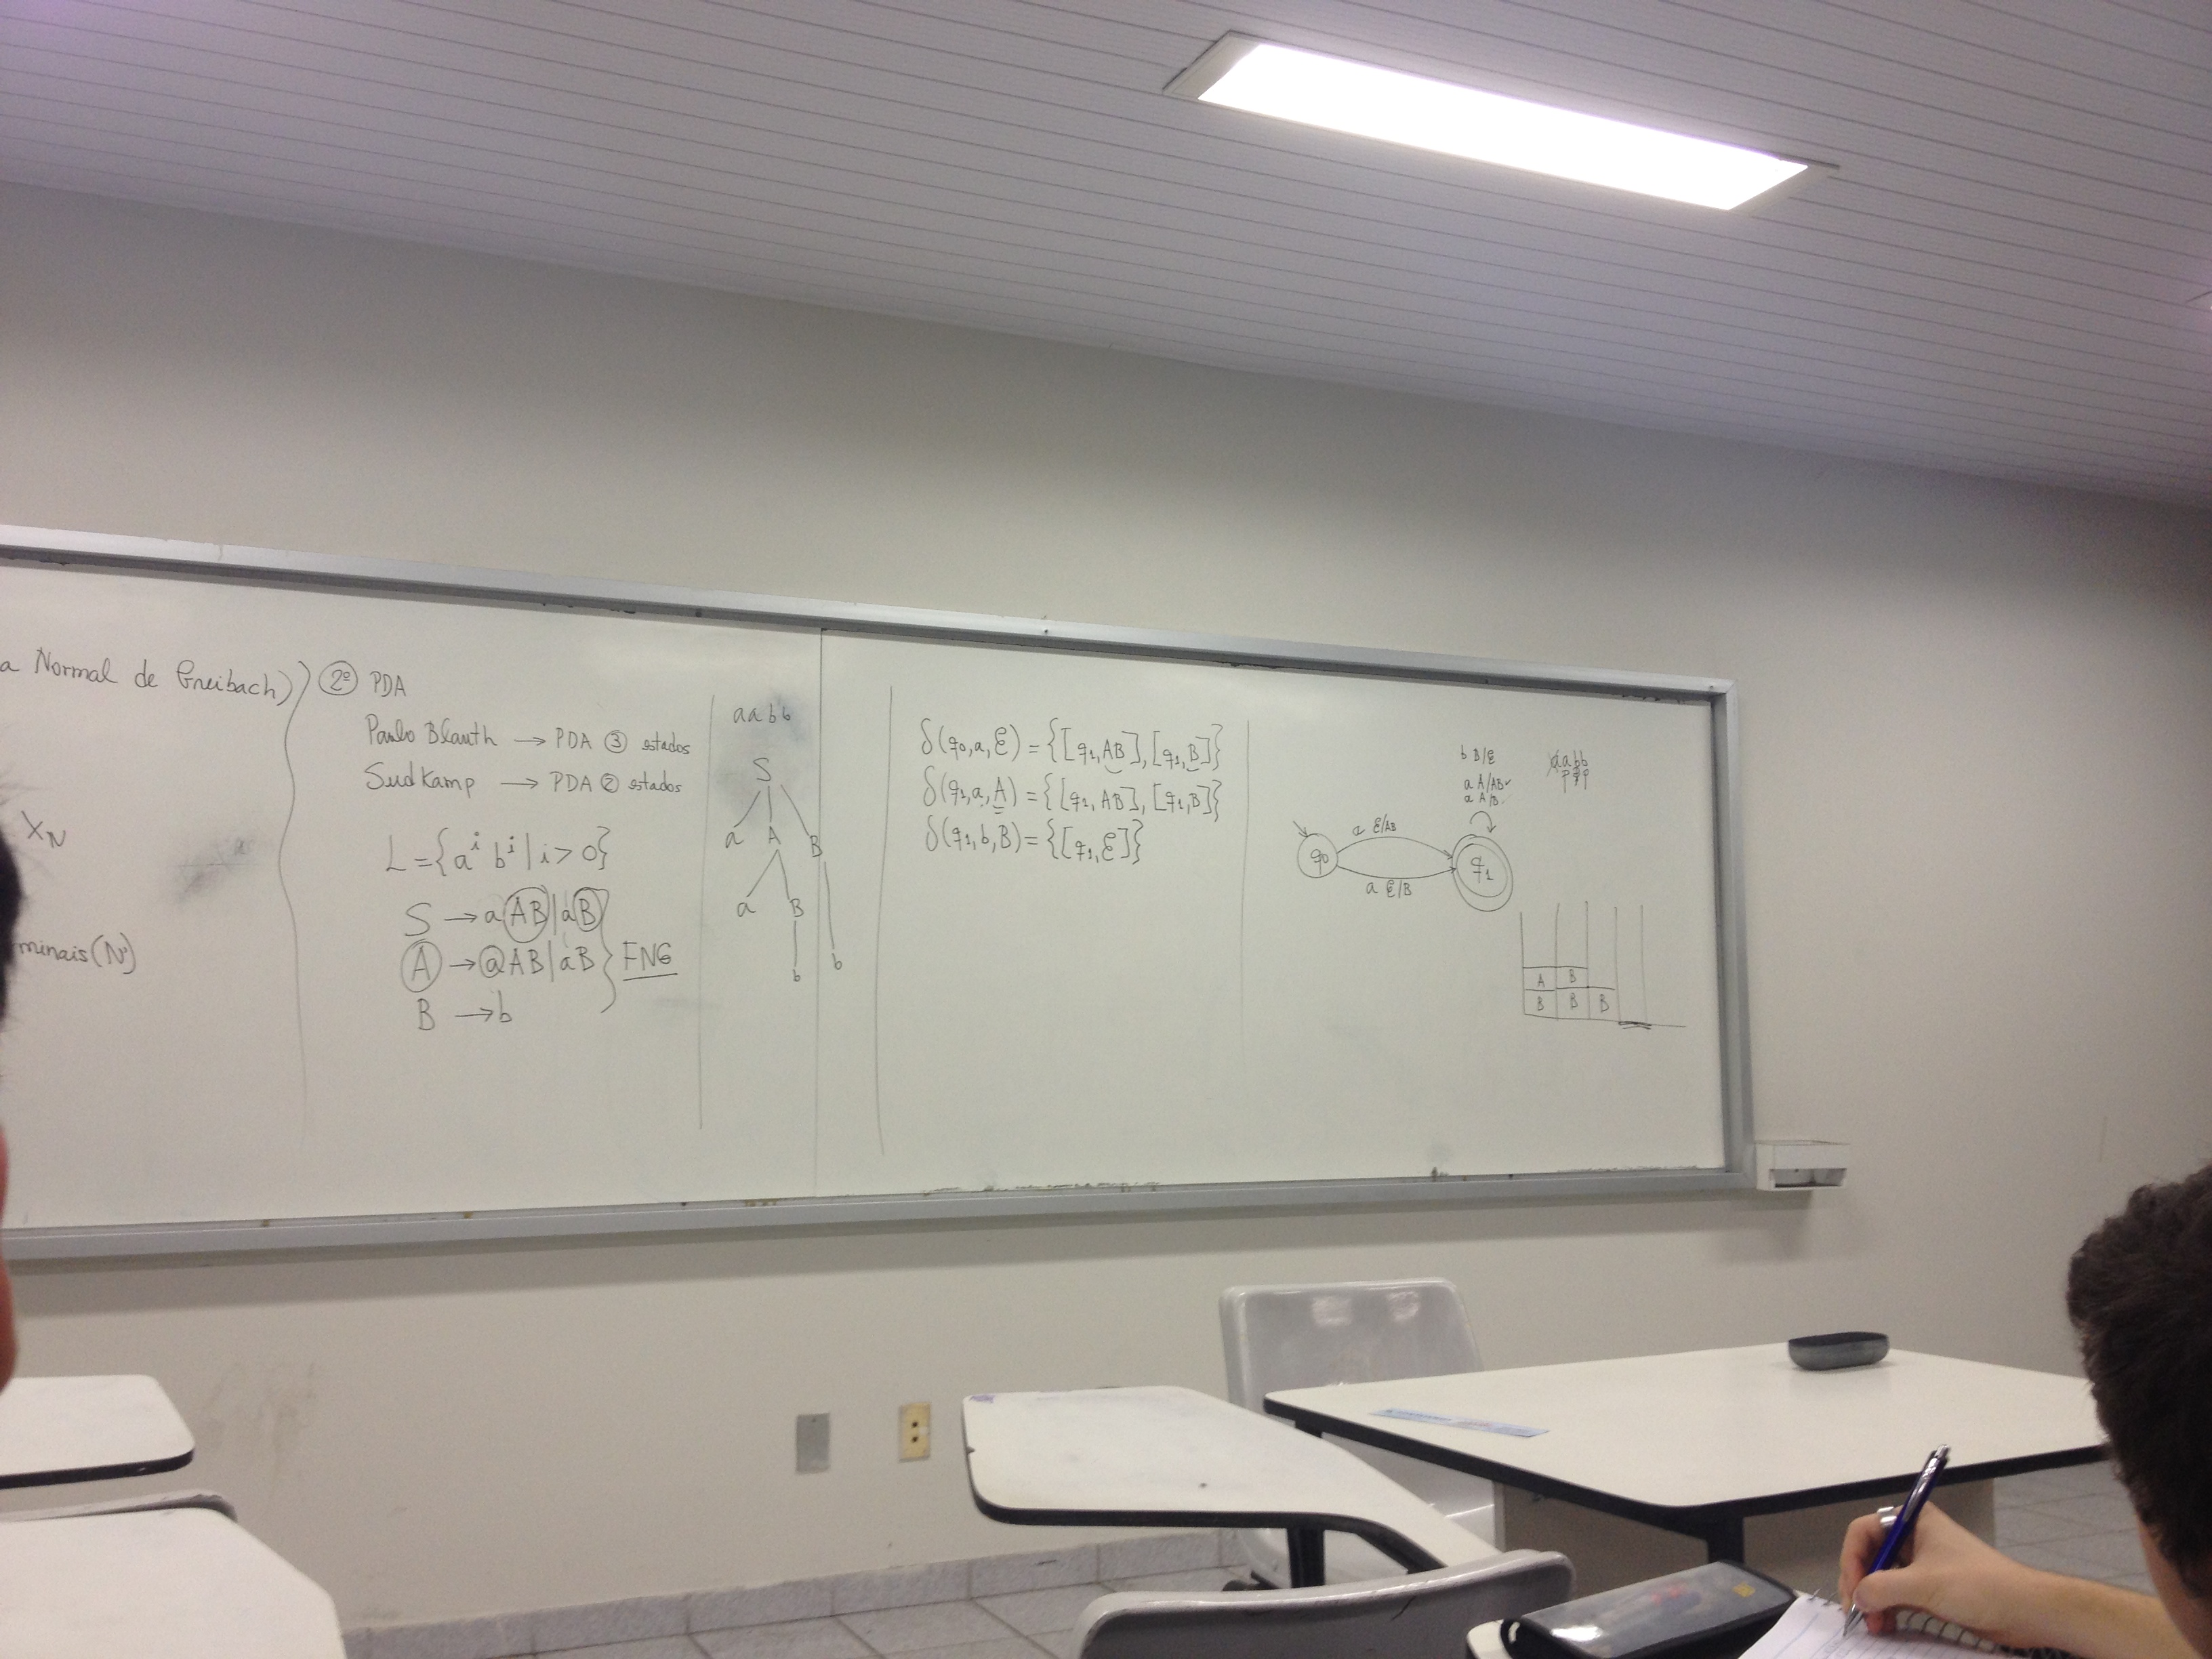 a Normal de Greibach)
X_N
minais (N)
2º PDA
Paulo Blauth → PDA ③ estados
Sudkamp → PDA ② estados
L = {aⁱ bⁱ | i > 0}
S → aAB | aB
A → aAB | aB } FNG
B → b
aabb
S
a A B
a B
b b
δ(q₀, a, ε) = {[q₁, AB], [q₁, B]}
δ(q₁, a, A) = {[q₁, AB], [q₁, B]}
δ(q₁, b, B) = {[q₁, ε]}
b B/ε
a A/AB
a A/B
a ε/AB
q₀ q₁
a ε/B
aabb
A B
B B B